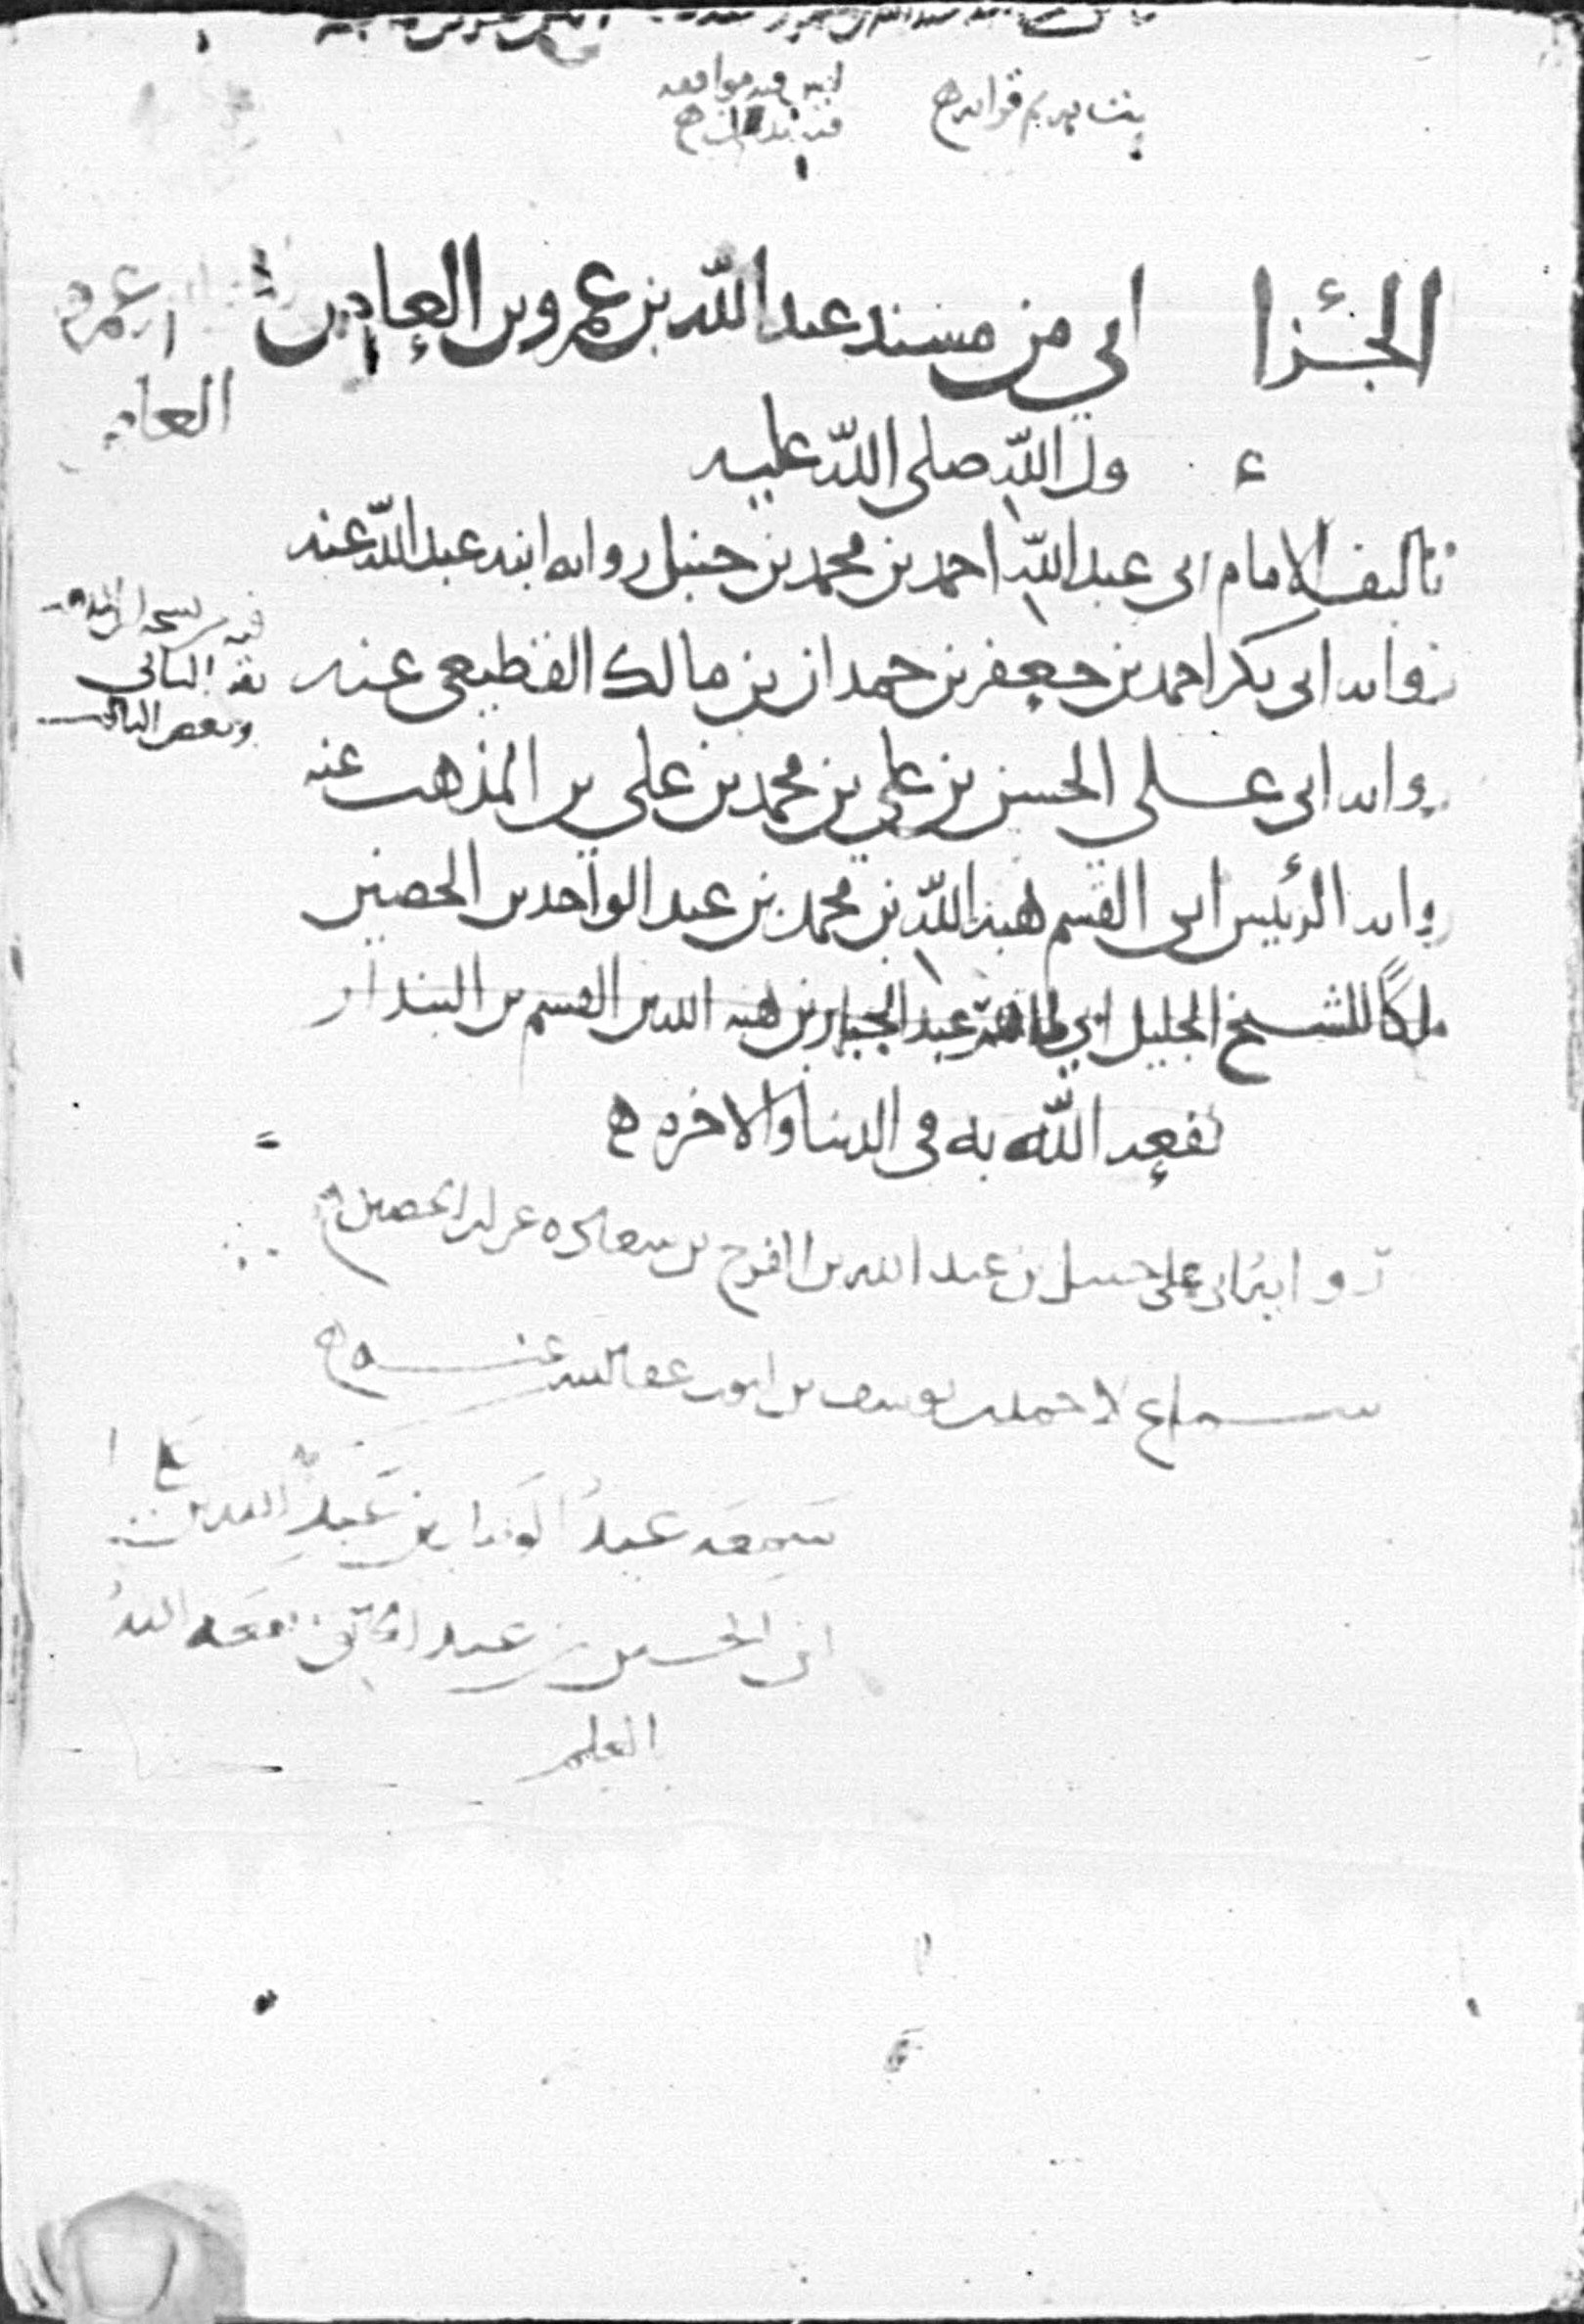 الجزء اني من مسند عبد الله بن عمرو بن العاص
ول الله صلى الله عليه
تاليف الامام ابي عبد الله احمد بن محمد بن حنبل روايه ابنه عبد الله عنه
روايه ابي بكر احمد بن جعفر بن حمدان بن مالك القطيعي عنه
روايه ابي علي الحسن بن علي بن محمد بن علي بن المذهب عنه
روايه الرئيس ابي القسم هبة الله بن محمد بن عبد الواحد بن الحصين
ملكًا للشيخ الجليل ابي طاهر عبد الجبار بن هبه الله بن القسم بن البندار
نفعه الله به في الدنيا والاخره
روايه ابي علي حنبل بن عبد الله بن الفرج بن سعاده عن ابن الحصين
سماع لاحمد بن يوسف بن ايوب عفا الله عنه
سمعه عبد بن عبد
ابن الحسين بن عبد نفعه الله
العلم
عمرو
العاص
فيه من نسخه
بقية الثاني
وبعض الثالث